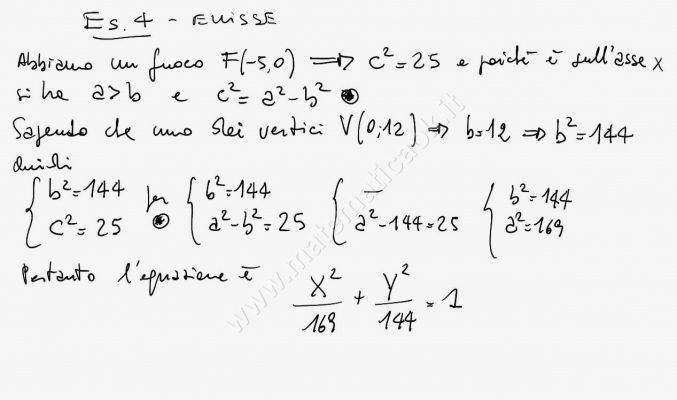 Es. 4 - ELLISSE
Abbiamo un fuoco F(-5,0) ⟹ c²=25 e poiché è sull'asse x
si ha a>b e c²=a²-b²
Sapendo che uno dei vertici V(0;12) ⟹ b=12 ⟹ b²=144
Quindi
{ b²=144 { b²=144 { — { b²=144
{ c²=25 { a²-b²=25 { a²-144=25 { a²=169
Pertanto l'equazione è X²/169 + Y²/144 = 1
www.matematicaok.it